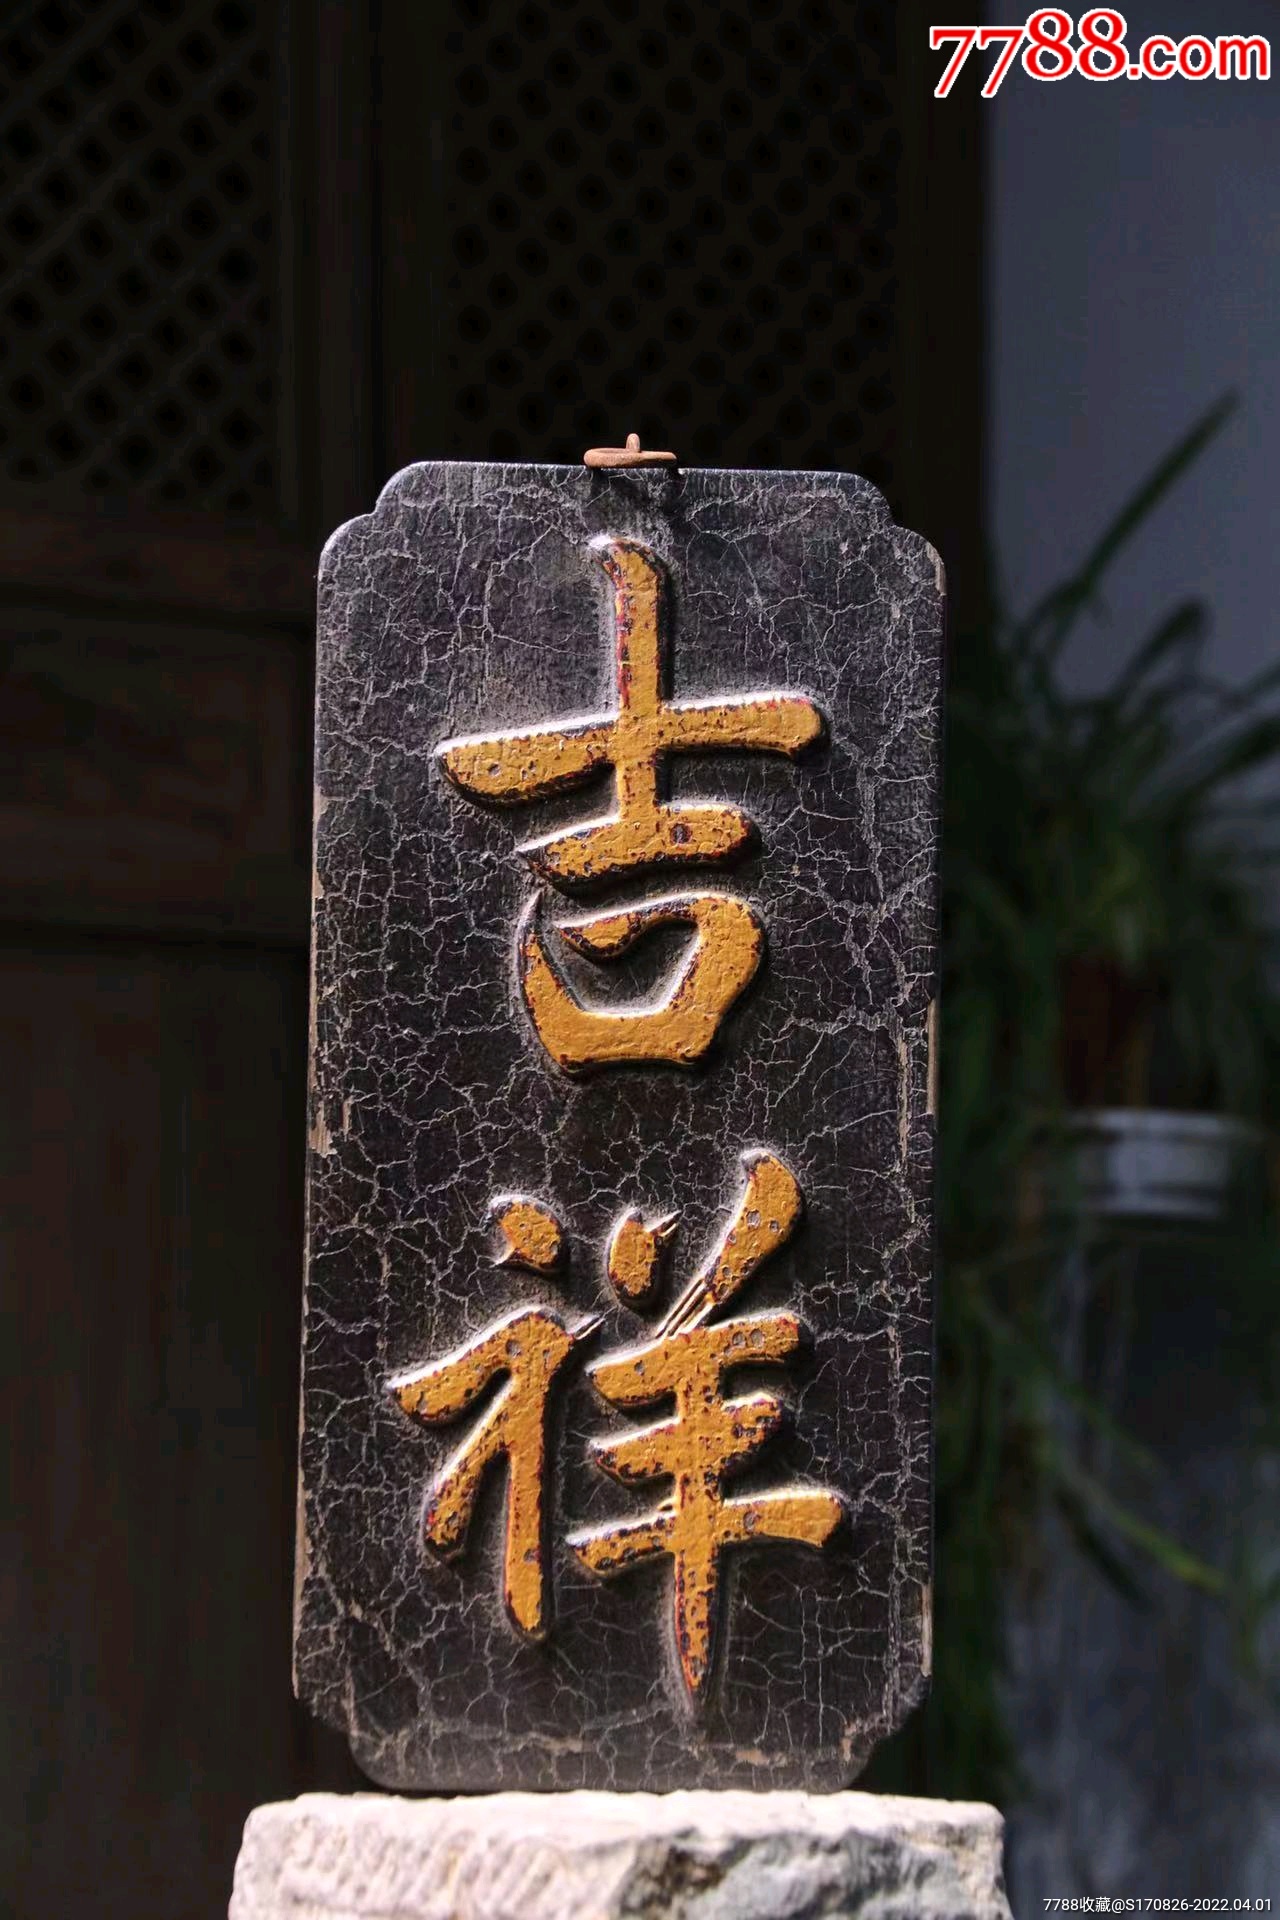 7788.com
吉祥
7788收藏@S170826-2022.04.01